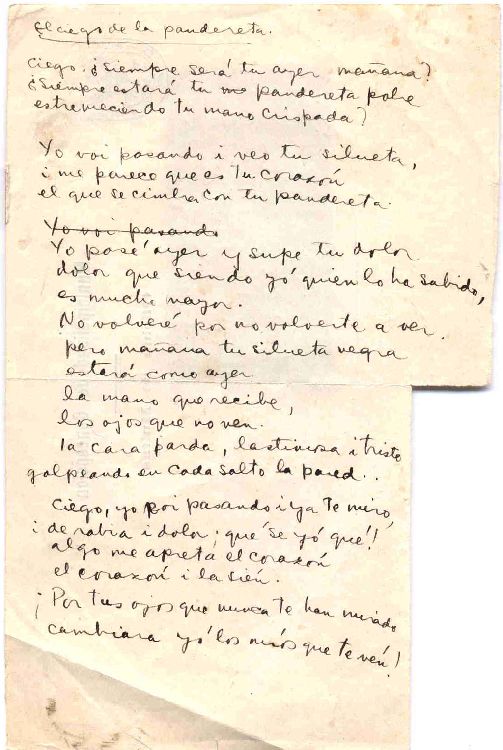 El ciego de la pandereta.
Ciego: ¿Siempre será tu ayer mañana?
¿Siempre estará tu pandereta pobre
estremeciendo tu mano crispada?
Yo voi pasando i veo tu silueta,
i me parece que es tu corazón
el que se cimbra con tu pandereta.
Yo voi pasando
Yo pasé ayer y supe tu dolor
dolor que siendo yó quien lo ha sabido,
es mucho mayor.
No volveré por no volverte a ver.
pero mañana tu silueta negra
estará como ayer
la mano que recibe,
los ojos que no ven.
la cara parda, lastimosa i triste
golpeando en cada salto la pared..
Ciego, yo voi pasando i ya te miro,
i de rabia i dolor; qué se yó qué!
algo me apreta el corazón
el corazón i la sién.
¡Por tus ojos que nunca te han mirado
cambiara yó los mios que te ven!